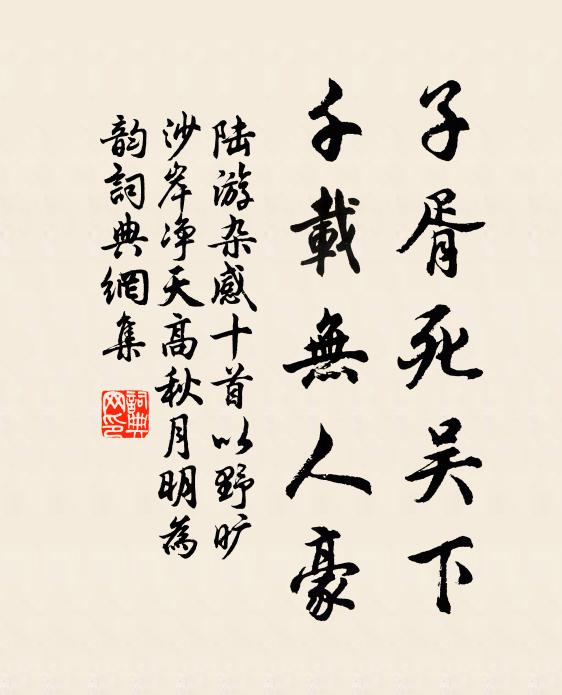 子胥死吴下
千載無人豪
陆游杂感十首以野旷
沙岸净天高秋月明為
韵詞典網集
詞典网印